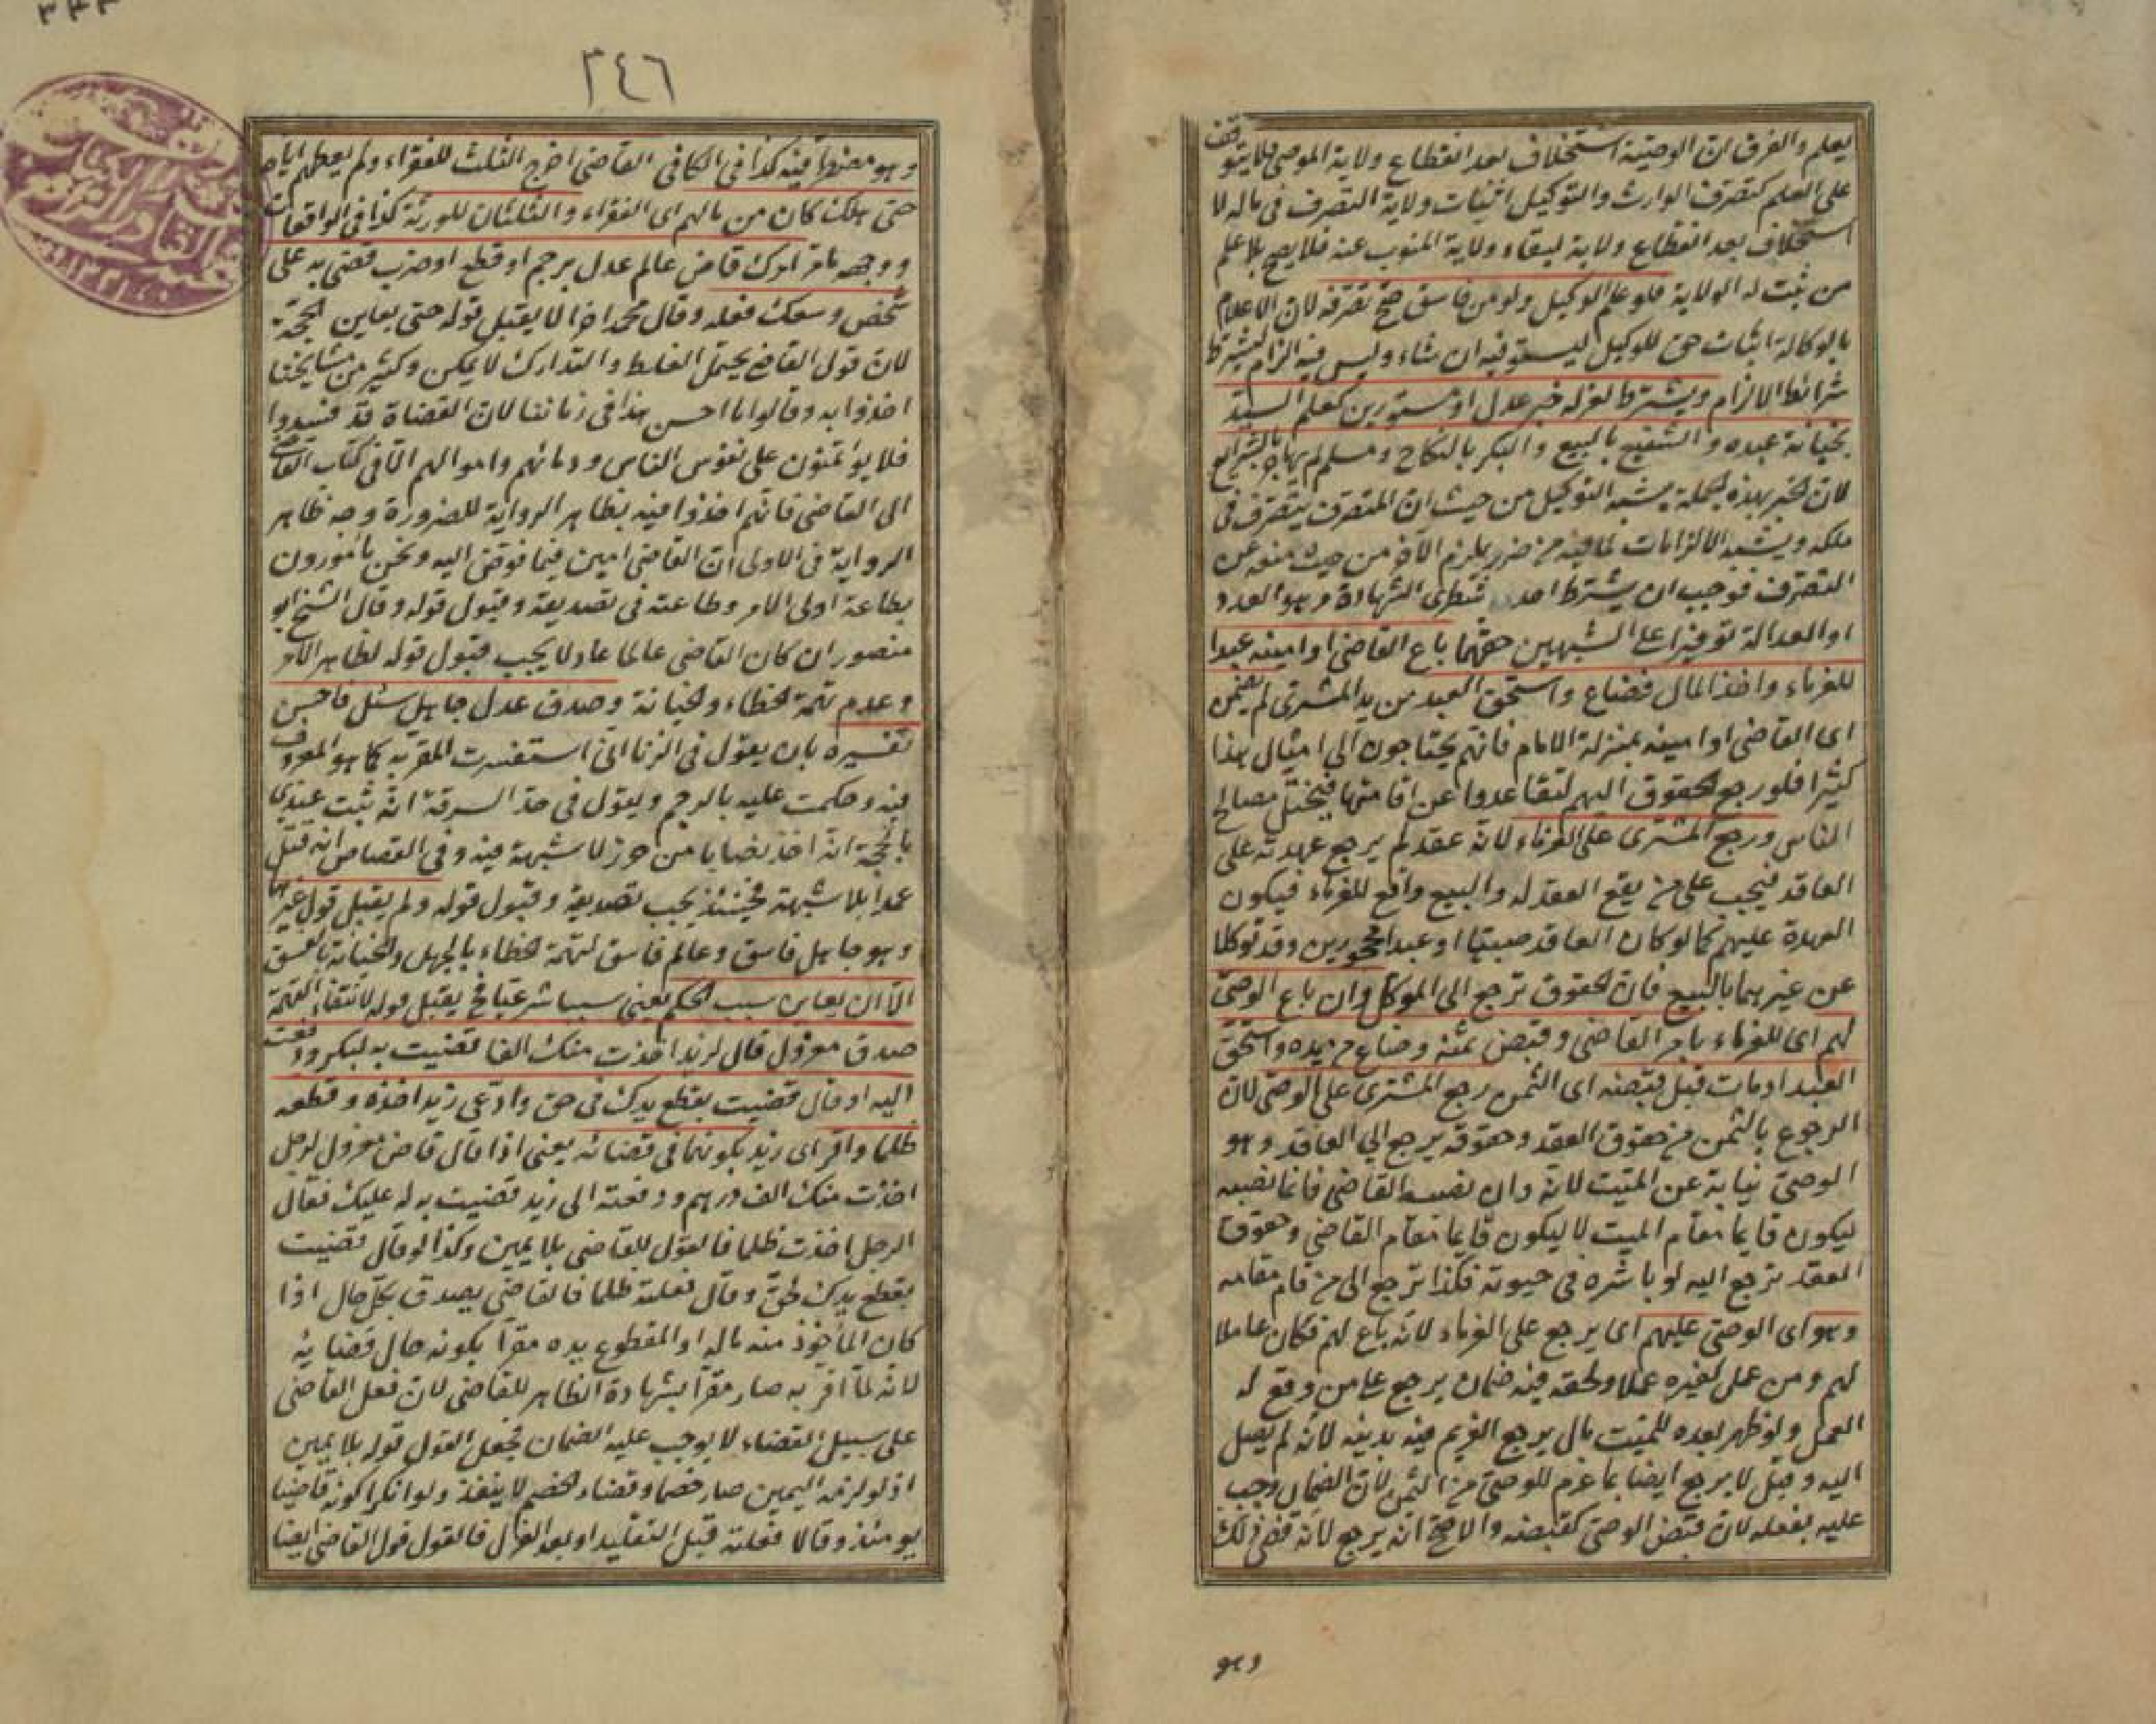 يعلم والفرق ان الوصية استخلاف بعد انقطاع ولاية الموصى فلا يتوقف
على العلم كتصرف الوارث والتوكيل اثبات ولاية التصرف فى ماله لا
استخلاف بعد انقطاع ولاية لبقاء ولاية المنوب عنه فلا يصح بلا علم
من ثبت له الولاية فلو علم الوكيل ولو من فاسق صح تصرفه لان الاعلام
بالوكالة اثبات حق للوكيل ليستوفيه ان شاء وليس فيه الزام ليشترط
شرائط الالزام ويشترط لعزله خبر عدل او مستورين كعلم السيد
بجناية عبده والشفيع بالبيع والبكر بالنكاح ومسلم لم يهاجر بالشرائع
لان الخبر بهذه الجملة يشبه التوكيل من حيث ان المتصرف يتصرف فى
ملكه ويشبه الالزامات لما فيه من ضرر يلزم الآخر من حيث منعه عن
التصرف فوجب ان يشترط احد شطرى الشهادة وهو العدد
او العدالة توفيرا على الشبهين حقهما باع القاضى او امينه عبدا
للغرماء واخذ المال فضاع واستحق العبد من يد المشترى لم يضمن
اى القاضى او امينه بمنزلة الامام فانهم يحتاجون الى امثال هذا
كثيرا فلو رجع الحقوق اليهم لتقاعدوا عن اقامتها فيختل مصالح
الناس ورجع المشترى على الغرماء لانه عقد لم يرجع عهدته على
العاقد فيجب على من يقع العقد له والبيع واقع للغرماء فيكون
العهدة عليهم كما لو كان العاقد صبيا او عبدا محجورين وقد توكلا
عن غيرهما بالبيع فان الحقوق ترجع الى الموكل وان باع الوصى
لهم اى للغرماء بامر القاضى وقبض ثمنه وضاع من يده واستحق
العبد او مات قبل قبضه اى الثمن رجع المشترى على الوصى لان
الرجوع بالثمن من حقوق العقد وحقوقه يرجع الى العاقد وهو
الوصى نيابة عن الميت لانه وان نصبه القاضى فانما نصبه
ليكون قايما مقام الميت لا ليكون قايما مقام القاضى وحقوق
العقد ترجع اليه لو باشره فى حيوته فكذا ترجع الى من قام مقامه
وهو اى الوصى عليهم اى يرجع على الغرماء لانه باع لهم فكان عاملا
لهم ومن عمل لغيره عملا ولحقه فيه ضمان يرجع على من وقع له
العمل ولو ظهر بعده للميت مال يرجع الغريم فيه بدينه لانه لم يصل
اليه وقيل لا يرجع ايضا بما غرم للوصى من الثمن لان الضمان وجب
عليه بفعله لان قبض الوصى كقبضه والاصح انه يرجع لانه قضى ذلك
وهو
٣٤٦
وهو مضطر فيه كذا فى الكافى القاضى اخرج الثلث للفقراء ولم يعطهم اياه
حتى هلك كان من مالهم اى الفقراء والثلثان للورثة كذا فى الواقعات
ووجهه مامر امرك قاض عالم عدل برجم او قطع او ضرب قضى به على
شخص وسعك فعله وقال محمد اخرا لا يقبل قوله حتى يعاين الحجة
لان قول القاضى يحتمل الغلط والتدارك لا يمكن وكثير من مشايخنا
اخذوا به وقالوا ما احسن هذا فى زماننا لان القضاة قد فسدوا
فلا يؤتمنون على نفوس الناس ودمائهم واموالهم الا فى كتاب القاضى
الى القاضى فانهم اخذوا فيه بظاهر الرواية للضرورة وجه ظاهر
الرواية فى الاولى ان القاضى امين فيما فوض اليه ونحن مامورون
بطاعة اولى الامر وطاعته فى تصديقه وقبول قوله وقال الشيخ ابو
منصور ان كان القاضى عالما عادلا يجب قبول قوله لظاهر الامر
وعدم تهمة الخطاء والخيانة وصدق عدل جاهل سئل فاحسن
تفسيره بان يقول فى الزنا انى استفسرت المقر به كما هو المعروف
فيه وحكمت عليه بالرجم ويقول فى حد السرقة انه ثبت عندى
بالحجة انه اخذ نصابا من حرز لا شبهة فيه وفى القصاص انه قتل
عمدا بلا شبهة فحينئذ يجب تصديقه وقبول قوله ولم يقبل قول غيرهما
وهو جاهل فاسق وعالم فاسق لتهمة الخطاء بالجهل والخيانة بالفسق
الا ان يعاين سبب الحكم يعنى سببا شرعيا فح يقبل قوله لانتفاء التهمة
صدق معزول قال لزيد اخذت منك الفا قضيت به لبكر ودفعت
اليه او قال قضيت بقطع يدك فى حق وادعى زيد اخذه وقطعه
ظلما واقر اى زيد بكونهما فى قضائه يعنى اذا قال قاض معزول لرجل
اخذت منك الف درهم ودفعته الى زيد قضيت به له عليك فقال
الرجل اخذت ظلما فالقول للقاضى بلا يمين وكذا لو قال قضيت
بقطع يدك بحق وقال فعلته ظلما فالقاضى يصدق بكل حال اذا
كان المأخوذ منه ماله او المقطوع يده مقرا بكونه حال قضايه
لانه لما اقر به صار مقرا بشهادة الظاهر للقاضى لان فعل القاضى
على سبيل القضاء لا يوجب عليه الضمان فجعل القول قوله بلا يمين
اذ لو لزمه اليمين صار خصما وقضاء الخصم لا ينفذ ولو انكرا كونه قاضيا
يومئذ وقالا فعلته قبل التقليد او بعد العزل فالقول قول القاضى ايضا